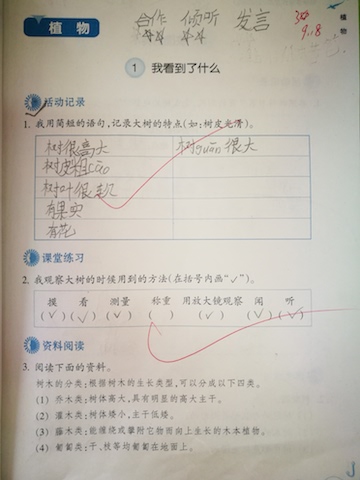 合作 倾听 发言
9.18
植物
植物
1 我看到了什么
活动记录
1. 我用简短的语句,记录大树的特点(如:树皮光滑)。
树很高大 树guān很大
树皮粗cāo
树叶很
有果实
有花
课堂练习
2. 我观察大树的时候用到的方法(在括号内画“✓”)。
摸 看 测量 称重 用放大镜观察 闻 听
(✓) (✓) (✓) ( ) (✓) (✓) (✓)
资料阅读
3. 阅读下面的资料。
树木的分类:根据树木的生长类型,可以分成以下四类。
(1) 乔木类:树体高大,具有明显的高大主干。
(2) 灌木类:树体矮小,主干低矮。
(3) 藤木类:能缠绕或攀附它物而向上生长的木本植物。
(4) 匍匐类:干、枝等均匍匐在地面上。